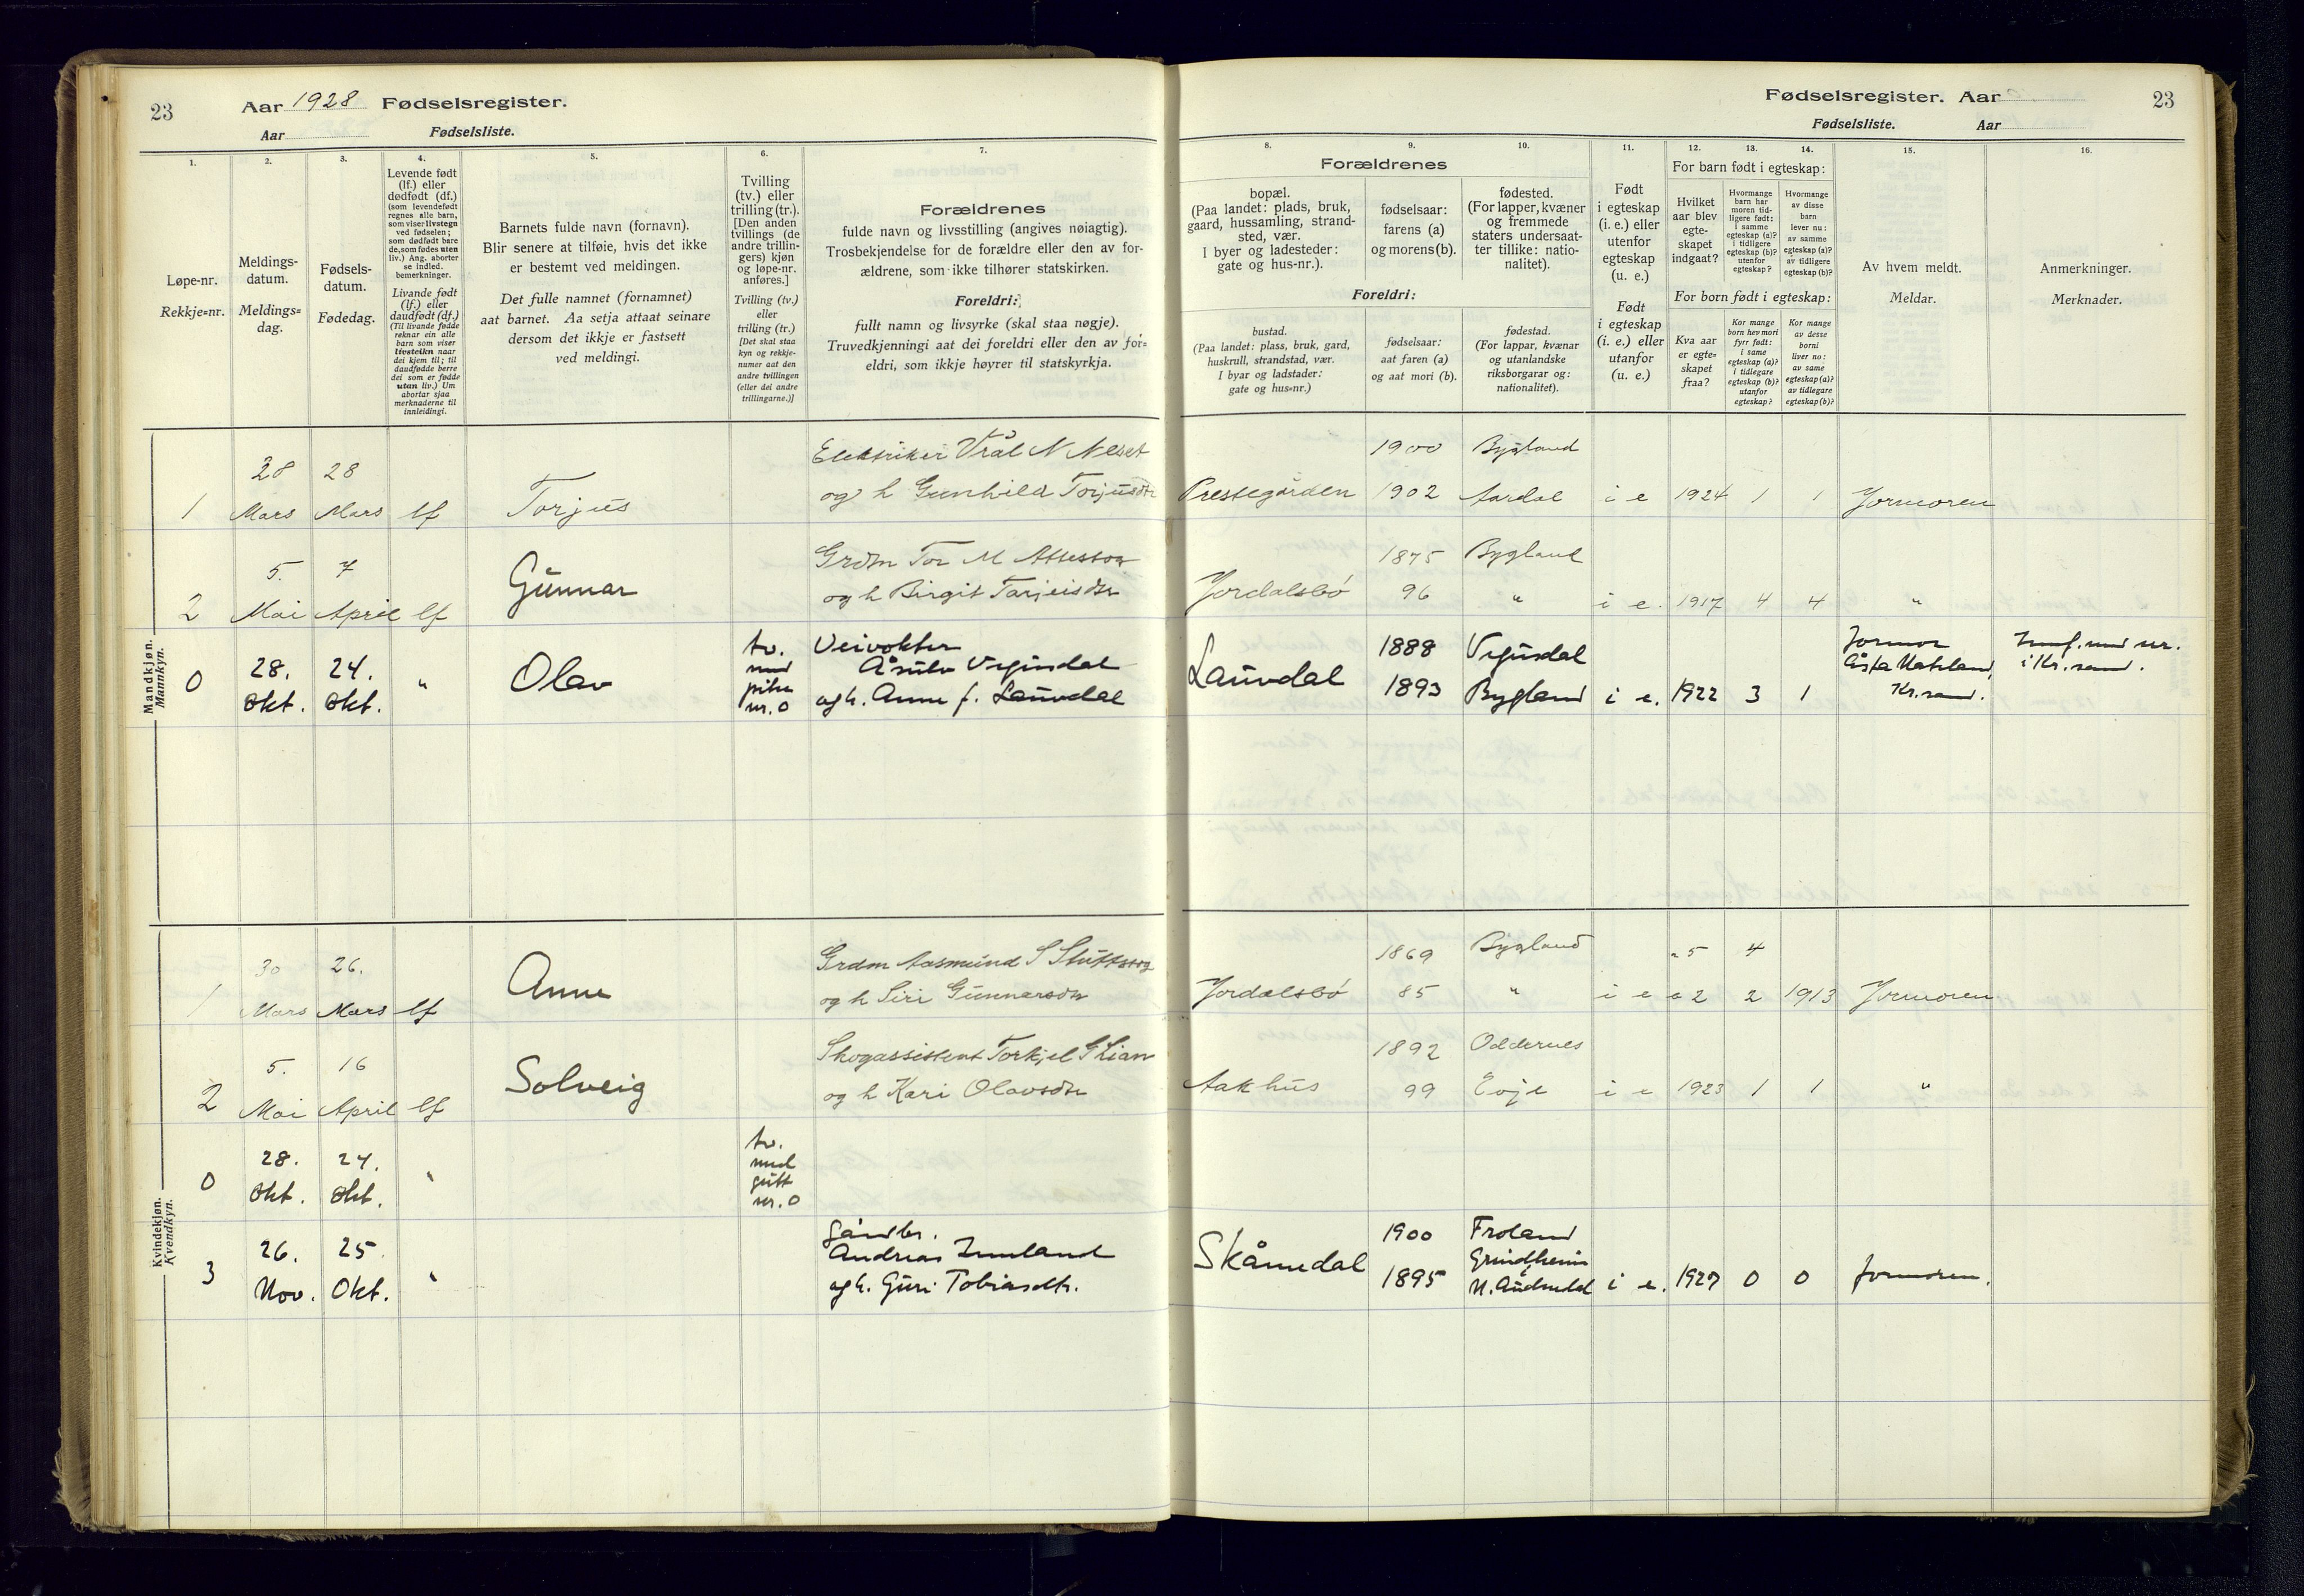 23
Aar 1928 Fødselsregister.
Aar Fødselsliste.
1.
2.
3.
4.
5.
6.
7.
Løpe-nr.
Rekkje=nr.
Meldings-
datum.
Meldings=
dag.
Fødsels-
datum.
Fødedag.
Levende født
(lf.) eller
dødfødt (df.)
(som levendefødt
regnes alle barn,
som viser livstegn
ved fødselen;
som dødfødt bare
de, som fødes uten
liv.) Ang. aborter
se indled.
bemerkninger.
Livande født
(lf.) eller
daudfødt (df.)
(Til livande fødde
reknar ein alle
barn som viser
livsteikn naar
dei kjem til; til
daudfødde berre
dei som er fødde
utan liv.) Um
abortar sjaa
merknaderne til
innleidingi.
Barnets fulde navn (fornavn).
Blir senere at tilføie, hvis det ikke
er bestemt ved meldingen.
Det fulle namnet (fornamnet)
aat barnet. Aa setja attaat seinare
dersom det ikkje er fastsett
ved meldingi.
Tvilling
(tv.) eller
trilling (tr.).
[Den anden
tvillings (de
andre trillin-
gers) kjøn
og løpe-nr.
anføres.]
Tvilling (tv.)
eller
trilling (tr.)
[Det skal staa
kyn og rekkje-
numer aat den
andre tvillingen
(eller dei andre
trillingarne.)]
Forældrenes
fulde navn og livsstilling (angives nøiagtig).
Trosbekjendelse for de forældre eller den av for-
ældrene, som ikke tilhører statskirken.
Foreldri:
fullt namn og livsyrke (skal staa nøgje).
Truvedkjenningi aat dei foreldri eller den av for=
eldri, som ikkje høyrer til statskyrkja.
Mandkjøn.
Mannkyn.
1 28 Mars 28 Mars lf Torjus Elektriker Vrål N Neset
og h Gunhild Torjusdtr
2 5. Mai 7 April lf Gunnar Grdm Tor M
og h Birgit Tarjeisdtr
0 28. Okt. 24. Okt. " Olav tv. med pike nr. 0 Veivokter
Åsulv Vegusdal
og h. Anne f. Lauvdal
Kvindekjøn.
Kvendkyn.
1 30 Mars 26. Mars lf Anne Grdm Aasmund S
og h Siri Gunnarsdtr
2 5. Mai 16 April lf Solveig Skogassistent Torkjel G Lian
og h Kari Olavsdtr
0 28. Okt. 24. Okt. " tv. med gutt nr. 0
3 26. Nov. 25. Okt. " Gårdbr.
Andreas
og h. Guri Tobiasdtr.
Fødselsregister. Aar
23
Fødselsliste. Aar
8.
9.
10.
11.
12.
13.
14.
15.
16.
Forældrenes
bopæl.
(Paa landet: plads, bruk,
gaard, hussamling, strand-
sted, vær.
I byer og ladesteder:
gate og hus-nr.).
fødselsaar:
farens (a)
og morens (b).
fødested.
(For lapper, kvæner
og fremmede
staters undersaat-
ter tillike: natio-
nalitet).
Foreldri:
bustad.
(Paa landet: plass, bruk, gard,
huskrull, strandstad, vær.
I byar og ladstader:
gate og hus=nr.)
fødselsaar:
aat faren (a)
og aat mori (b).
fødestad.
(For lappar, kvænar
og utanlandske
riksborgarar og:
nationalitet).
Født
i egteskap
(i. e.) eller
utenfor
egteskap
(u. e.)
Født
i egteskap
(i. e.) eller
utanfor
(u. e.)
For barn født i egteskap:
Hvilket
aar blev
egte-
skapet
indgaat?
Hvormange
barn har
moren tid-
ligere født:
i samme
egteskap (a)?
i tidligere
egteskap (b)?
utenfor
egteskap?
Hvormange
av disse
barn
lever nu:
av samme
egteskap (a)?
av tidligere
egteskap (b)?
For born født i egteskap:
Kva aar
er egte=
skapet
fraa?
Kor mange
born hev mori
fyrr født:
i same
egteskap (a)?
i tidlegare
egteskap (b)?
utanfor
egteskap?
Kor mange
av desse
borni
liver no:
av same
egteskap (a)?
av tidlegare
egteskap (b)?
Av hvem meldt.
Meldar.
Anmerkninger.
Merknader.
1900 Bygland
Prestegården 1902 Aardal i e 1924 1 1 Jormoren
1875 Bygland
Jordalsbø 96 " i e. 1917 4 4 "
1888 Vegusdal Jormor
Lauvdal 1893 Bygland i e. 1922 3 1 Åsta Kr.sand. i Kr.sand.
1869 Bygland a 5 4
Jordalsbø 85 " i e a 2 2 1913 Jormoren
1892 Oddernes
Aakhus 99 Evje i e 1923 1 1 "
1900 Froland
Skåmedal 1895 Grindheim N. Audnedal i e. 1927 0 0 Jormoren.